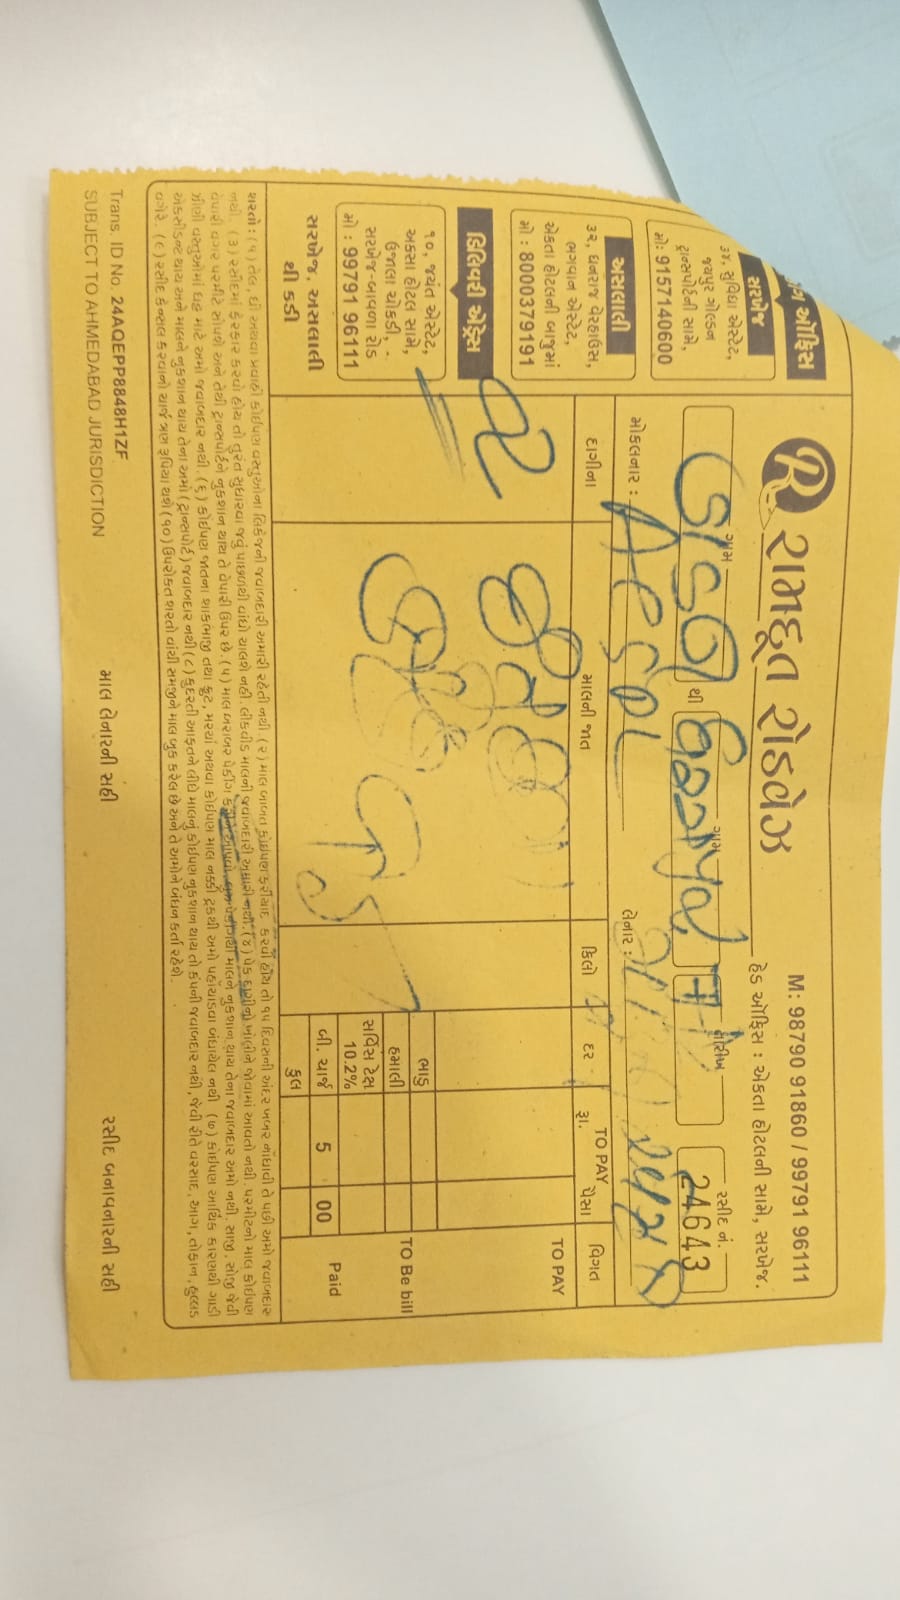 રામદૂત રોડવેઝ
M: 98790 91860 / 99791 96111
હેડ ઑફિસ : એકતા હોટલની સામે, સરખેજ.
ઑફિસ
સરખેજ
૩૪, સુવિધા એસ્ટેટ,
જયપુર ગોલ્ડન
ટ્રાન્સપોર્ટની સામે,
મો: 9157140600
અસલાલી
૩૨, ધનરાજ વેરહાઉસ,
ભગવાન એસ્ટેટ,
એકતા હોટલની બાજુમાં
મો : 8000379191
ડિલિવરી એડ્રેસ
૧૦, જયંત એસ્ટેટ,
અક્સા હોટલ સામે,
ઉજાલા ચોકડી,
સરખેજ-બાવળા રોડ
મો : 99791 96111
સરખેજ, અસલાલી
થી કડી
ગામ થી ગામ તારીખ રસીદ નં.
24643
મોકલનાર : લેનાર :
દાગીના માલની જાત કિલો દર TO PAY રૂા. પૈસા વિગત
૨
TO PAY
ભાડુ
હમાલી
TO Be bill
સર્વિસ ટેક્ષ 10.2%
Paid
બી. ચાર્જ 5 00
કુલ
શરતો : (૧) તેલ, ઘી અથવા પ્રવાહી કોઈપણ વસ્તુઓના લિકેજની જવાબદારી અમારી રહેતી નથી. (૨) માલ બાબત કોઈપણ ફરીયાદ કરવી હોય તો ૧૫ દિવસની અંદર ખબર નોંધાવી તે પછી અમો જવાબદાર
નથી. (૩) રસીદમાં ફેરફાર કરવો હોય તો તુરંત સુધારવા જવું પાછળથી વાંધો ચાલશે નહી. લીકવીડ માલની જવાબદારી અમારી નથી. (૪) પેક દાગીનો ખોલીને જોવામાં આવતો નથી. પરમીટનો માલ કોઈપણ
વેપારી વગર પરમીટે સોંપશે અને તેથી ટ્રાન્સપોર્ટને નુકશાન થાય તે વેપારી ઉપર છે. (૫) માલ બરાબર પેકીંગ કરીને આપવો. લુઝ પેકીંગથી માલને નુકશાન થાય તેના જવાબદાર અમો નથી. સાજી, સોજી જેવી
ઝીણી વસ્તુઓમાં ઘટ્ટ માટે અમો જવાબદાર નથી. (૬) કોઈપણ જાતના શાકભાજી તથા ફ્રુટ, મરચાં અથવા કોઈપણ માલ નક્કી ટ્રકથી અમો પહોંચાડવા બંધાયેલ નથી (૭) કોઈપણ આર્થિક કારણથી ગાડી
એક્સીડન્ટ થાય અને માલને નુકશાન થાય તેના અમો (ટ્રાન્સપોર્ટ) જવાબદાર નથી (૮) કુદરતી આફતને લીધે માલનું કોઈપણ નુકશાન થાય તો કંપની જવાબદાર નથી, જેવી રીતે વરસાદ, આગ, તોફાન, હુલ્લડ
વગેરે. (૯) રસીદ કેન્સલ કરવાનો ચાર્જ ત્રણ રૂપિયા થશે (૧૦) ઉપરોક્ત શરતો વાંચી સમજીને માલ બુક કરેલ છે અને તે અમોને બંધન કર્તા રહેશે.
Trans. ID No. 24AQEPP8848H1ZF
SUBJECT TO AHMEDABAD JURISDICTION
માલ લેનારની સહી
રસીદ બનાવનારની સહી